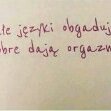 łe języki obgaduj
obre dają orgazm